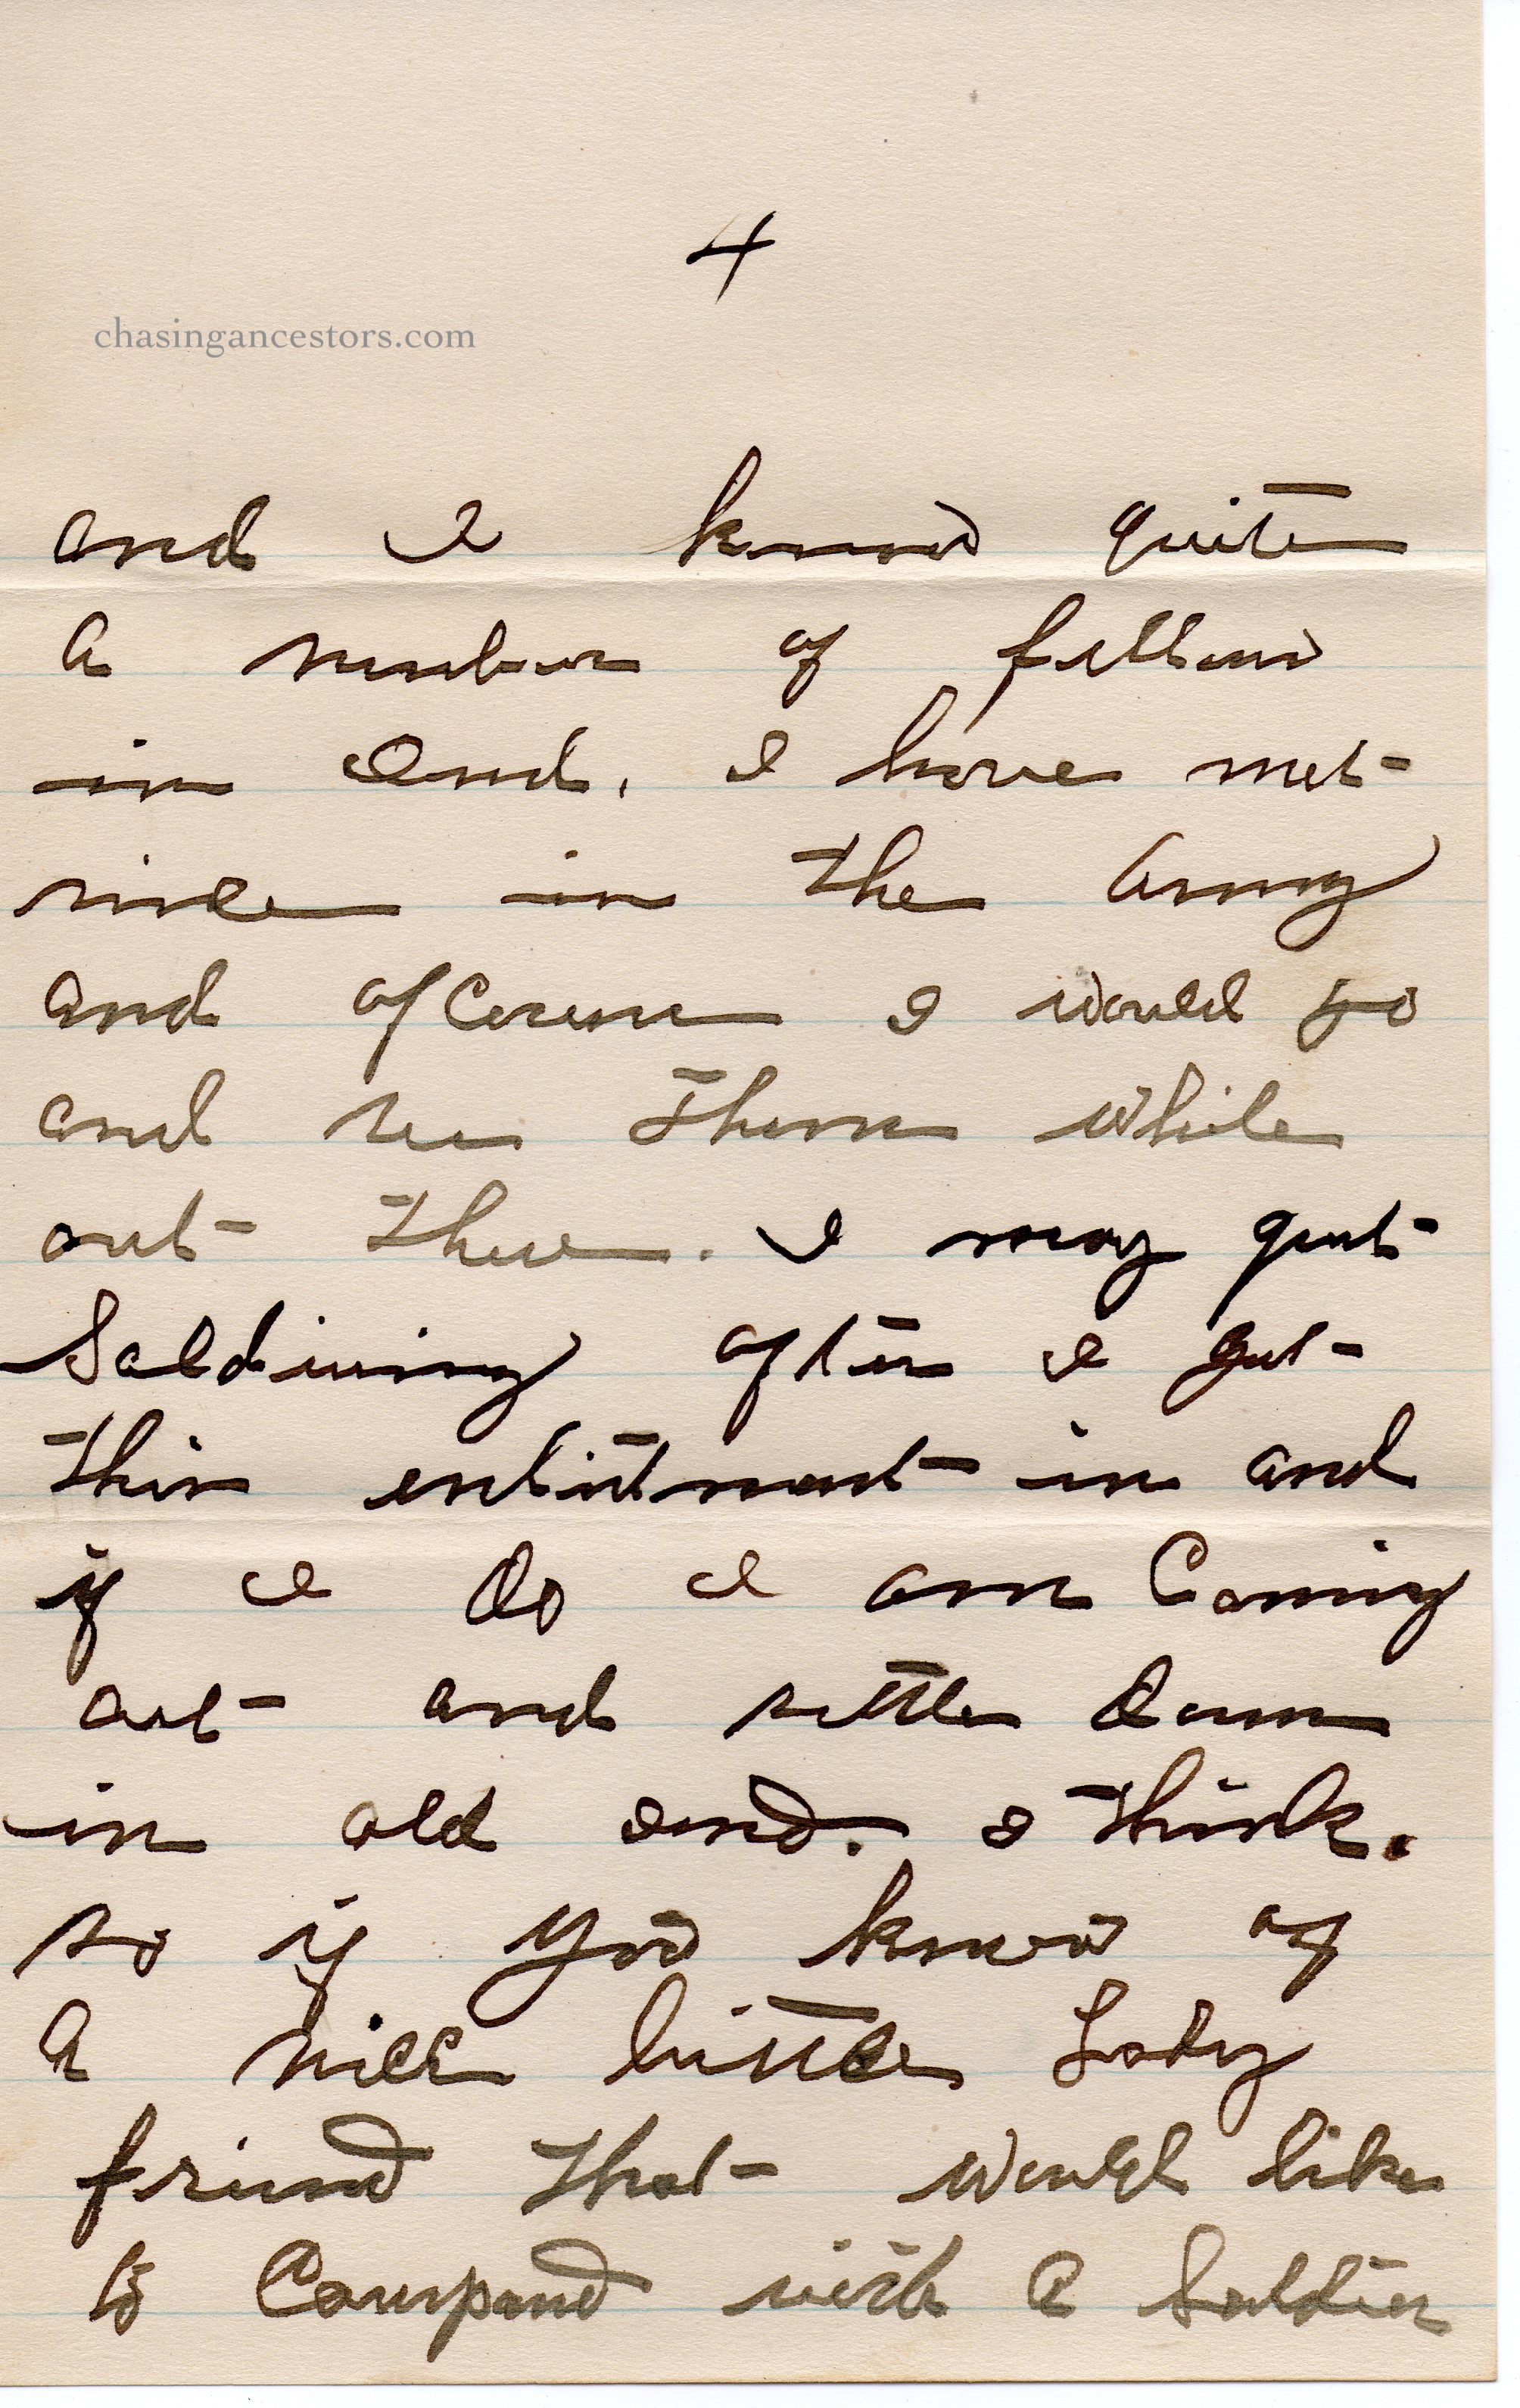 4
chasingancestors.com
and I know quite
a number of fellow
in Ind. I have met
since in the army
and of Course I would go
and see them while
out there. I may quit
Soldiering after I get
this enlistment in and
if I do I am Coming
out and settle down
in old Ind. I think.
so if you know of
a nice little Lady
friend that would like
to Courspond with a Soldier